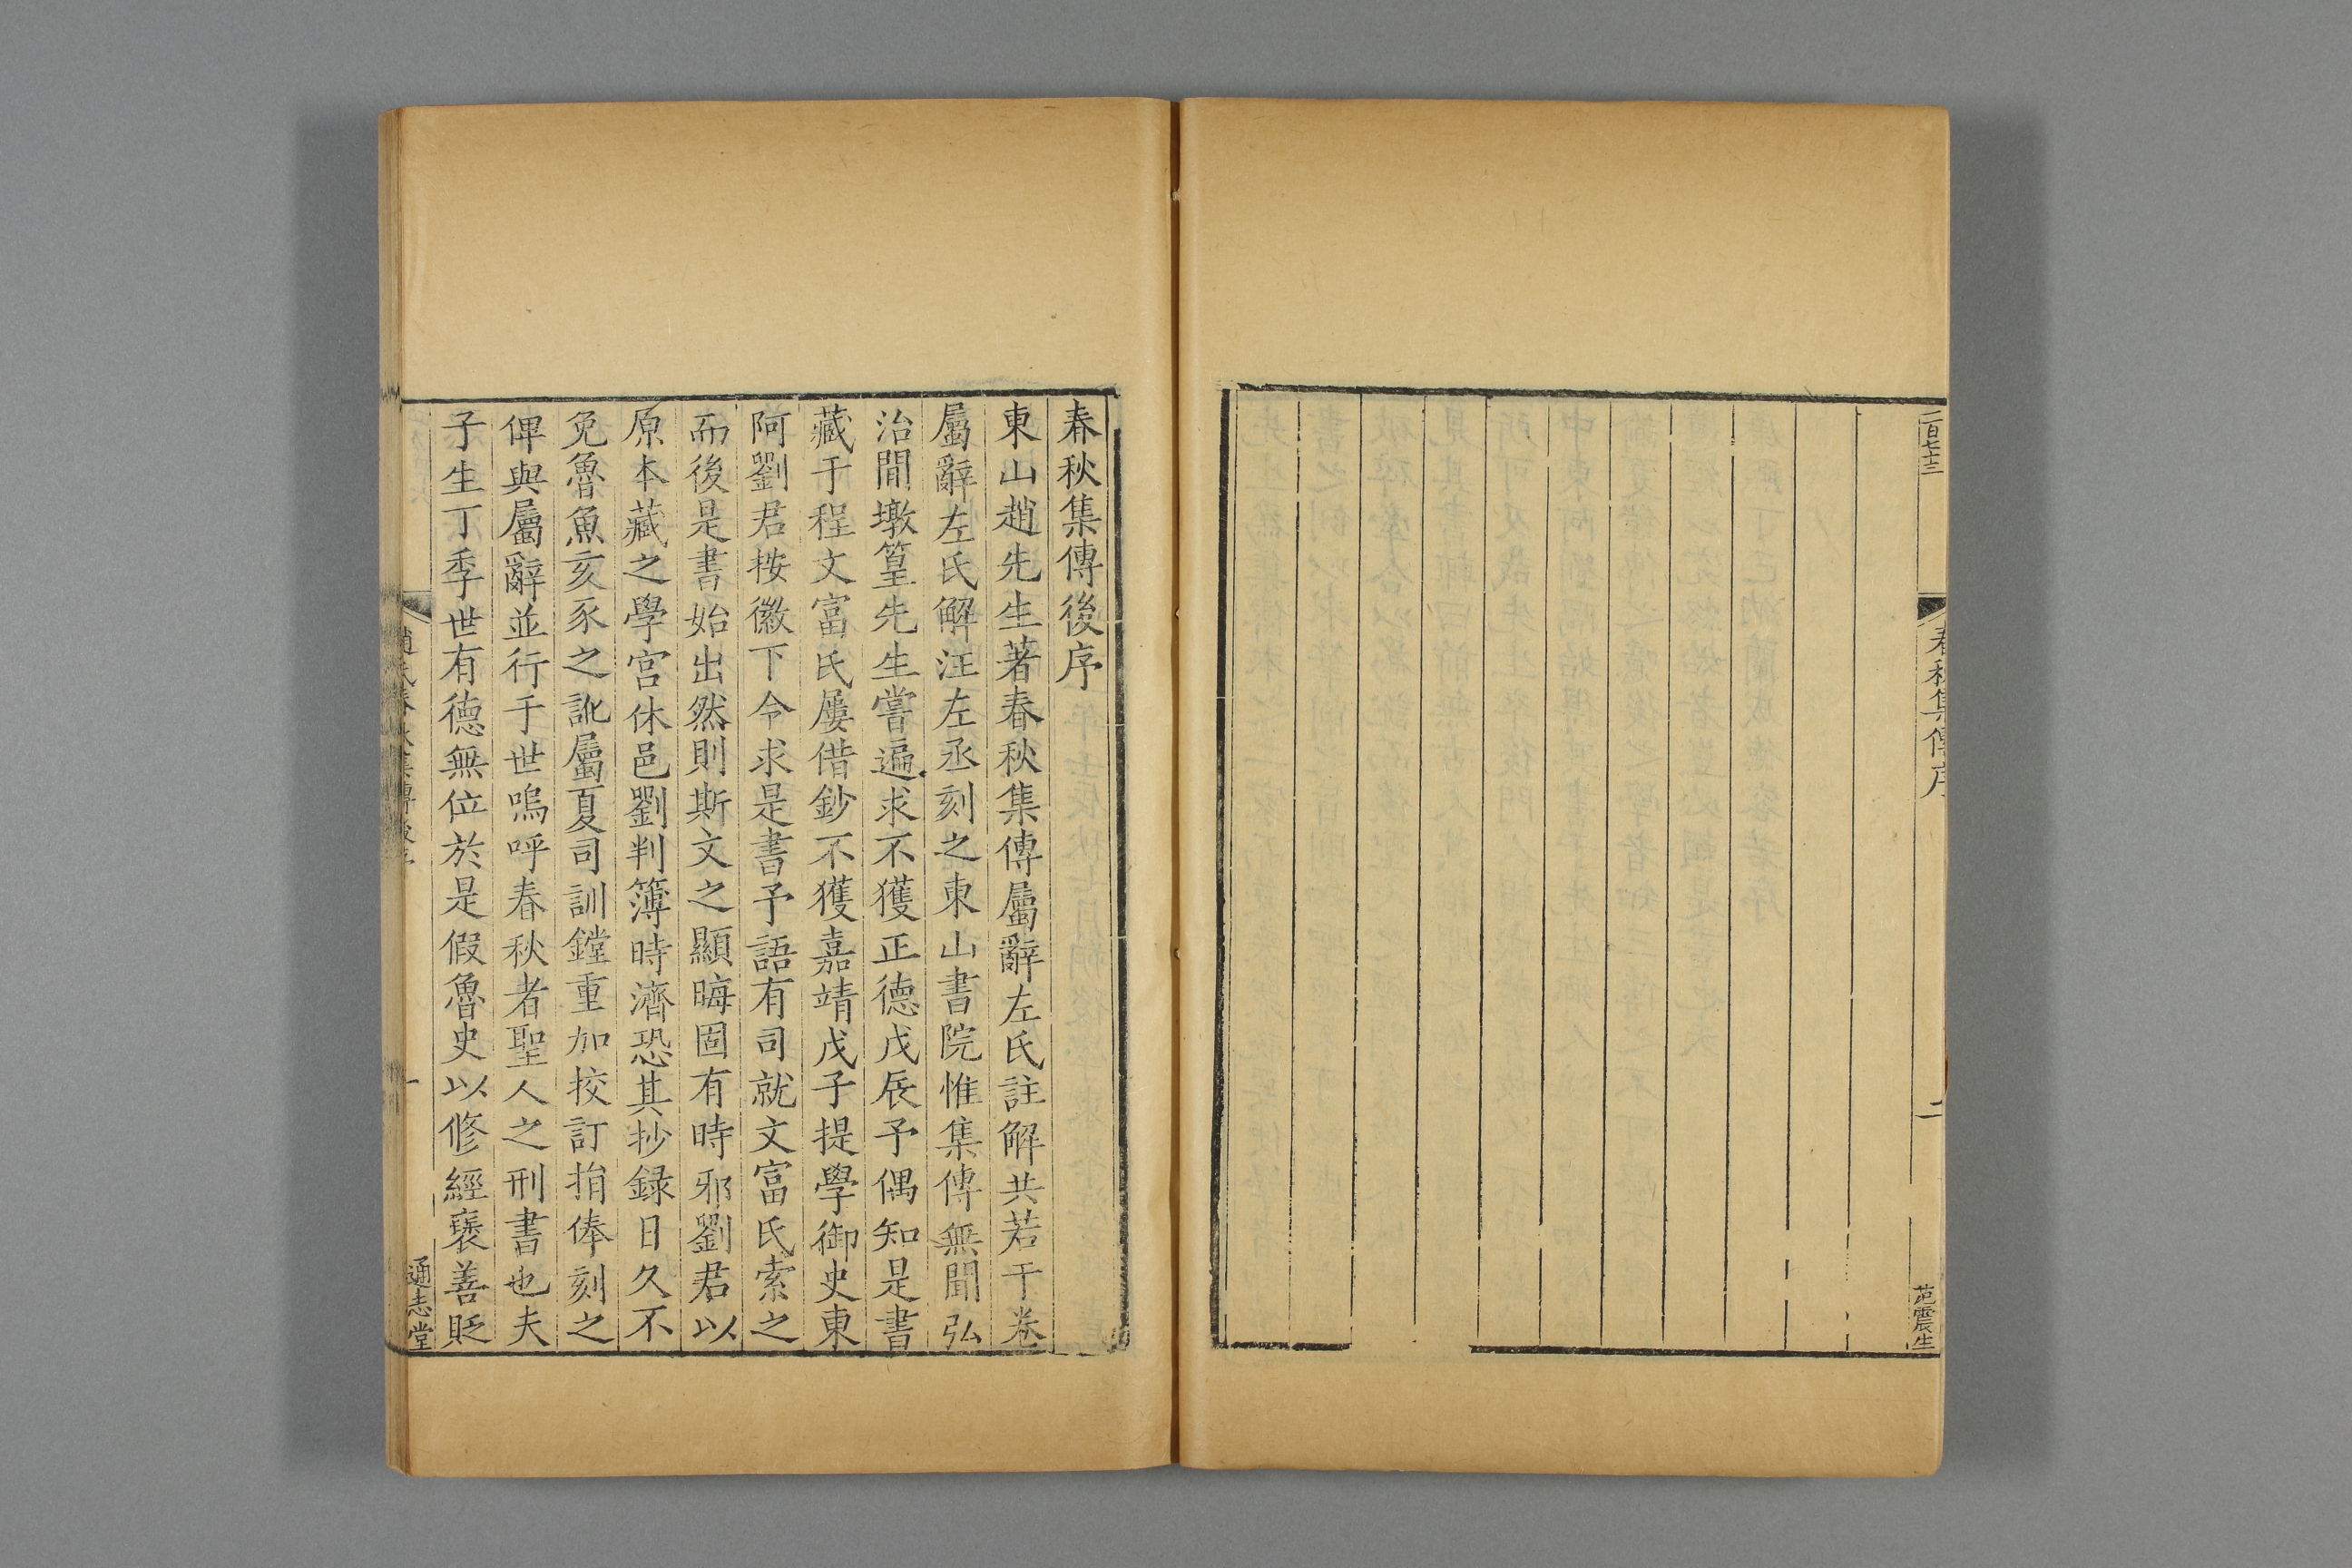 二百七十三
春秋集傳序
二
范震生
春秋集傳後序
東山趙先生著春秋集傳屬辭左氏註解共若干卷
屬辭左氏解汪左丞刻之東山書院惟集傳無聞弘
治間墩篁先生嘗遍求不獲正德戊辰予偶知是書
藏于程文富氏屢借鈔不獲嘉靖戊子提學御史東
阿劉君按徽下令求是書予語有司就文富氏索之
而後是書始出然則斯文之顯晦固有時邪劉君以
原本藏之學宮休邑劉判簿時濟恐其抄録日久不
免魯魚亥豕之訛屬夏司訓鏜重加挍訂捐俸刻之
俾與屬辭並行于世嗚呼春秋者聖人之刑書也夫
子生丁季世有德無位於是假魯史以修經褒善貶
趙氏春秋集傳後序
一
通志堂